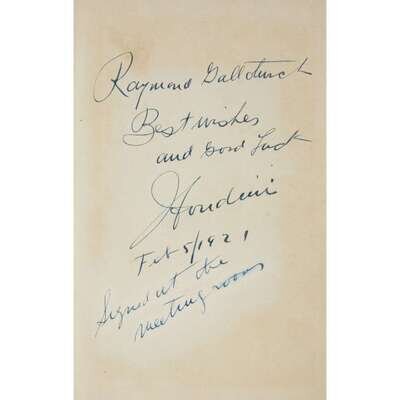 Raymond
Best wishes
and Good Luck
Houdini
Feb 5/1921
Signed at the
meeting rooms